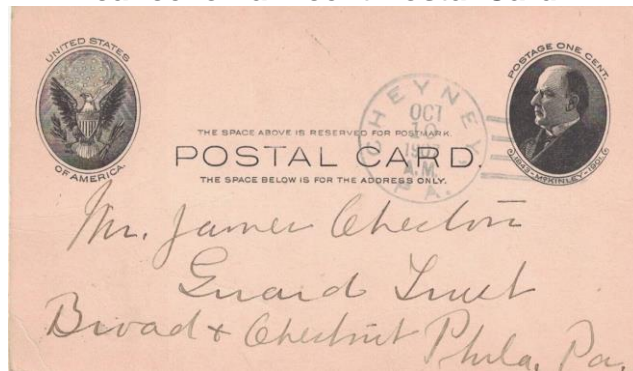 UNITED STATES
OF AMERICA.
POSTAGE ONE CENT.
1843-McKINLEY-1901.
CHEYNEY
OCT
10
A.M.
PA.
THE SPACE ABOVE IS RESERVED FOR POSTMARK.
POSTAL CARD.
THE SPACE BELOW IS FOR THE ADDRESS ONLY.
Mr. James Cheston
Girard Trust
Broad & Chestnut Phila. Pa.